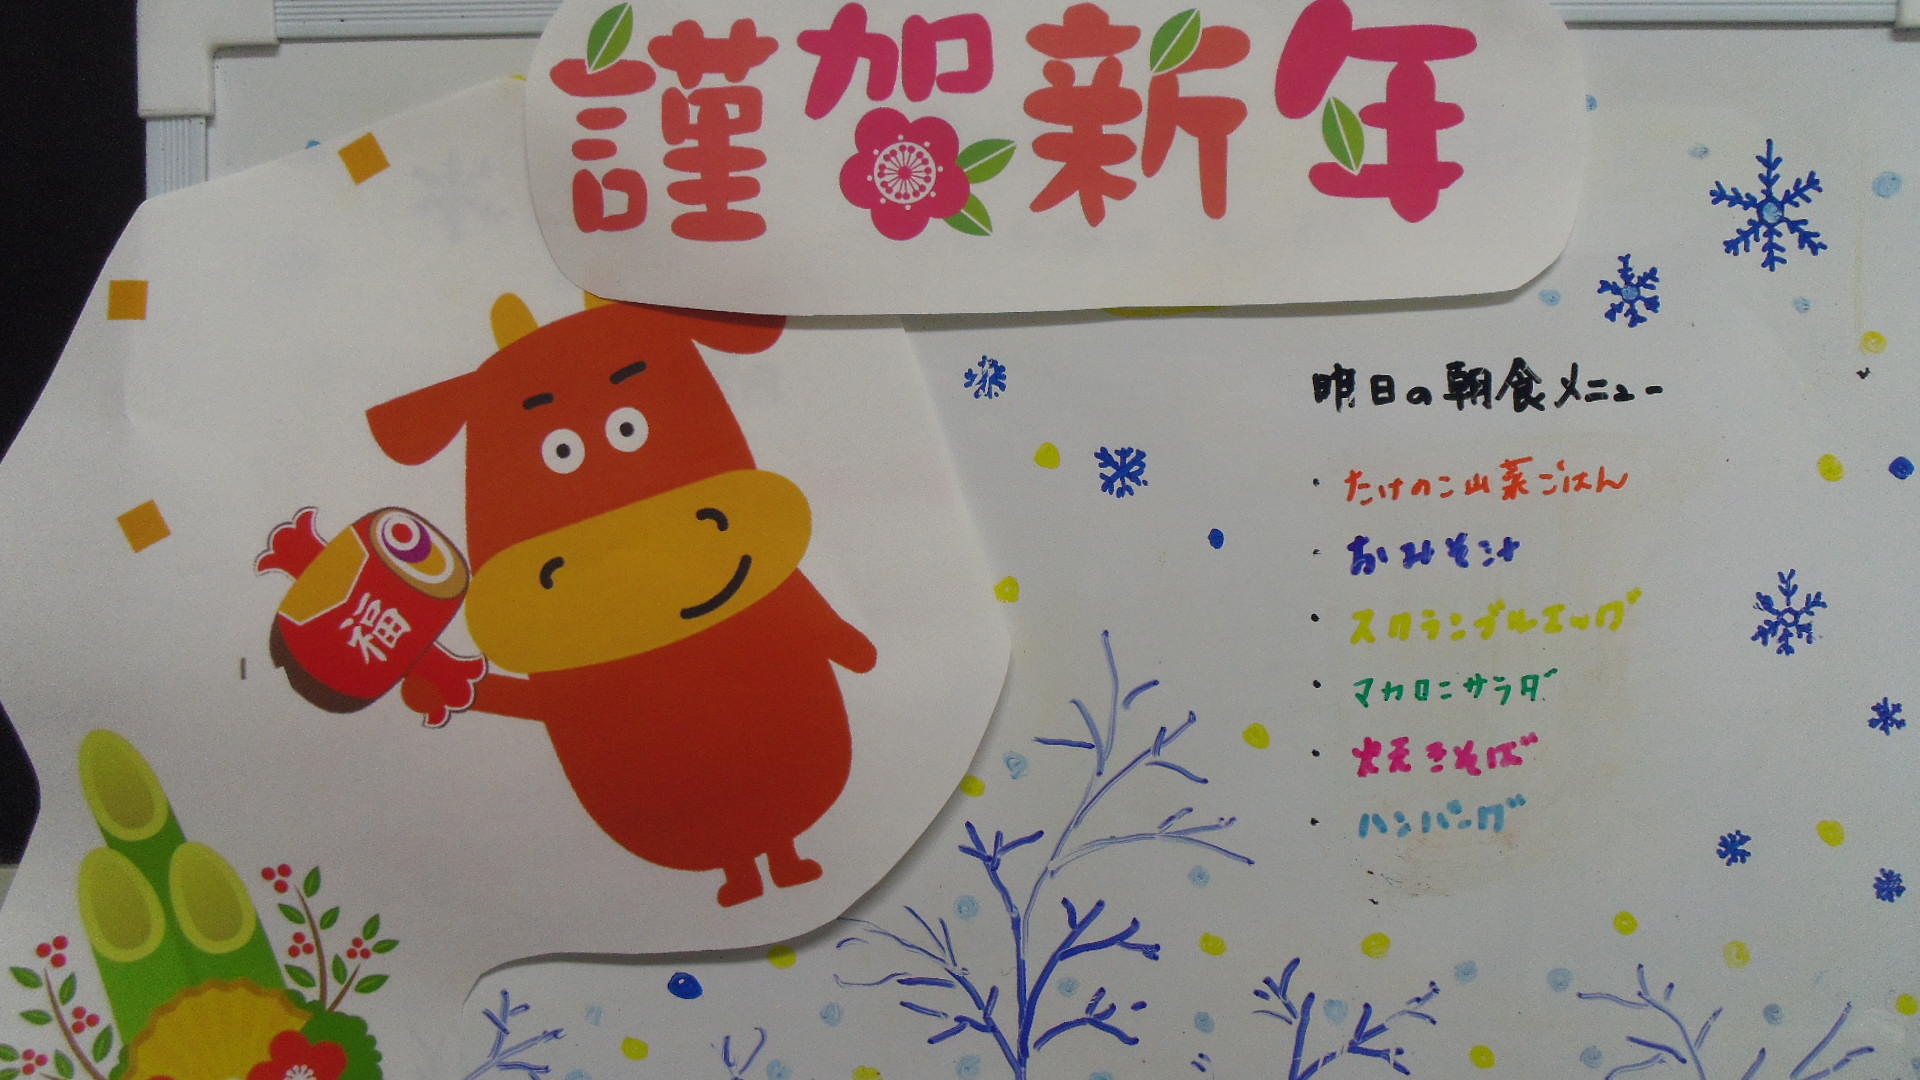 謹賀新年
福
明日の朝食メニュー
・たけのこ山菜ごはん
・おみそ汁
・スクランブルエッグ
・マカロニサラダ
・焼きそば
・ハンバーグ